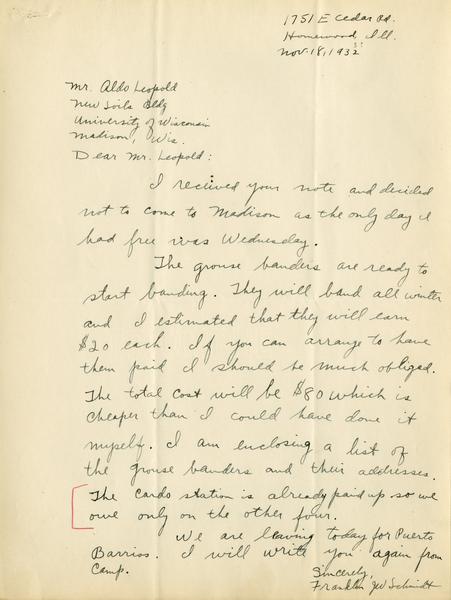 1751 E Cedar Rd.
Homewood, Ill.
Nov. 18, 1932
Mr. Aldo Leopold
New Soils Bldg
University of Wisconsin
Madison, Wis.
Dear Mr. Leopold:
I received your note and decided
not to come to Madison as the only day I
had free was Wednesday.
The grouse banders are ready to
start banding. They will band all winter
and I estimated that they will earn
$20 each. If you can arrange to have
them paid I should be much obliged.
The total cost will be $80 which is
cheaper than I could have done it
myself. I am enclosing a list of
the grouse banders and their addresses.
The Cardo station is already paid up so we
owe only on the other four.
We are leaving today for Puerto
Barrios. I will write you again from
camp.
Sincerely,
Franklin JW Schmidt